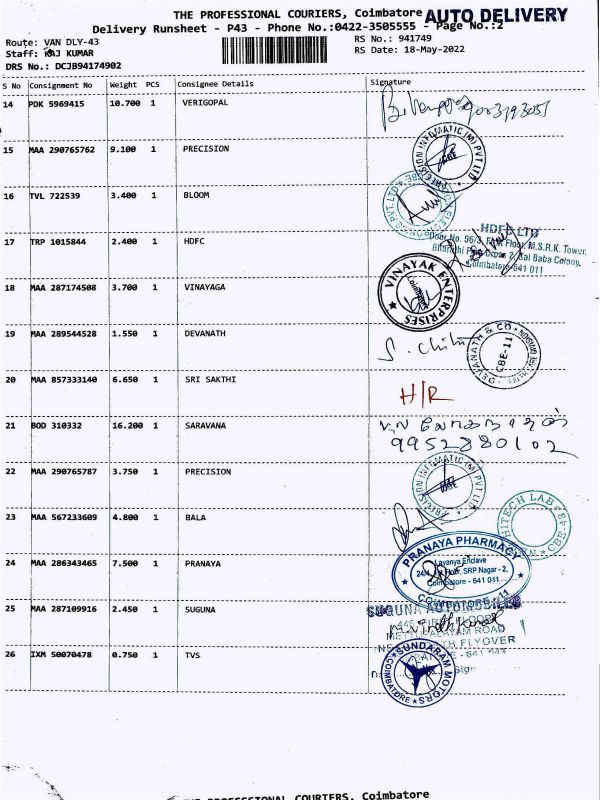 THE PROFESSIONAL COURIERS, Coimbatore AUTO DELIVERY
Delivery Runsheet - P43 - Phone No.:0422-3505555 - Page No.:2
Route: VAN DLY-43 RS No.: 941749
Staff: RAJ KUMAR RS Date: 18-May-2022
DRS No.: DCJB94174902
S No Consignment No Weight PCS Consignee Details Signature
14 PDK 5969415 10.700 1 VERIGOPAL
15 MAA 290765762 9.100 1 PRECISION
PRECISION INFOMATIC (M) PVT LTD
CBE
16 TVL 722539 3.400 1 BLOOM
17 TRP 1015844 2.400 1 HDFC
HDFC LTD
Door No. 96/3, First Floor, M.S.R.K. Tower,
Bharathi Park Cross 2, Sai Baba Colony,
Coimbatore-641 011
18 MAA 287174508 3.700 1 VINAYAGA
VINAYAK ENTERPRISES
Coimbatore
19 MAA 289544528 1.550 1 DEVANATH
DEVANATH & CO
CBE-11
20 MAA 857333140 6.650 1 SRI SAKTHI
H/R
21 BOD 310332 16.200 1 SARAVANA
9952880102
22 MAA 290765787 3.750 1 PRECISION
PRECISION INFOMATIC (M) PVT LTD
CBE
23 MAA 567233609 4.800 1 BALA
HITECH LAB
CBE-43
24 MAA 286343465 7.500 1 PRANAYA
PRANAYA PHARMACY
Lavanya Enclave
Floor, SRP Nagar - 2,
Coimbatore - 641 011
COIMBATORE-11
25 MAA 287109916 2.450 1 SUGUNA
SUGUNA AUTOMOBILES
METTUPALAYAM ROAD
NORTH FLYOVER
26 IXM 50070478 0.750 1 TVS
SUNDARAM MOTORS
COIMBATORE
THE PROFESSIONAL COURIERS, Coimbatore